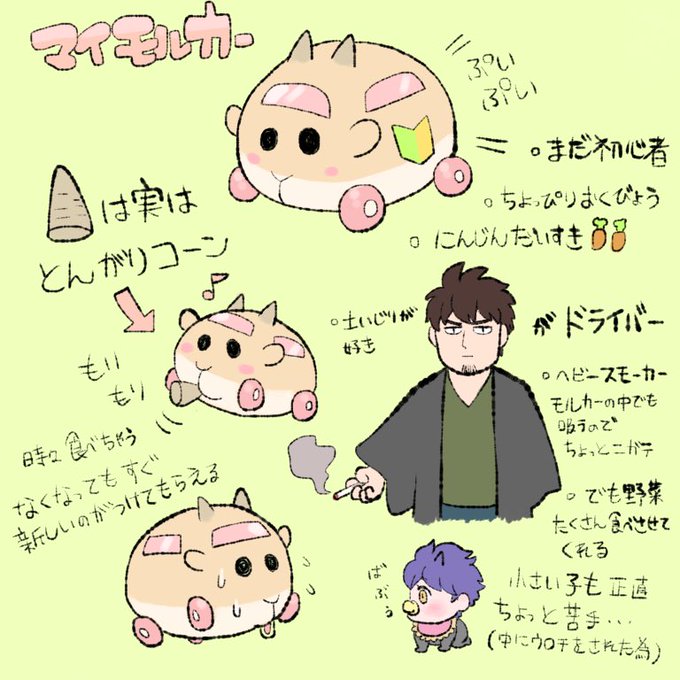 マイモルカー
ぷい
ぷい
。まだ初心者
。ちょっぴりおくびょう
。にんじんだいすき
は実は
とんがりコーン
もり
もり
時々食べちゃう
なくなってもすぐ
新しいのがつけてもらえる
。土いじりが
好き
がドライバー
。ヘビースモーカー
モルカーの中でも
吸うので
ちょっとニガテ
。でも野菜
たくさん食べさせて
くれる
ばぶぅ
小さい子も正直
ちょっと苦手…
(中にウロチをされた為)